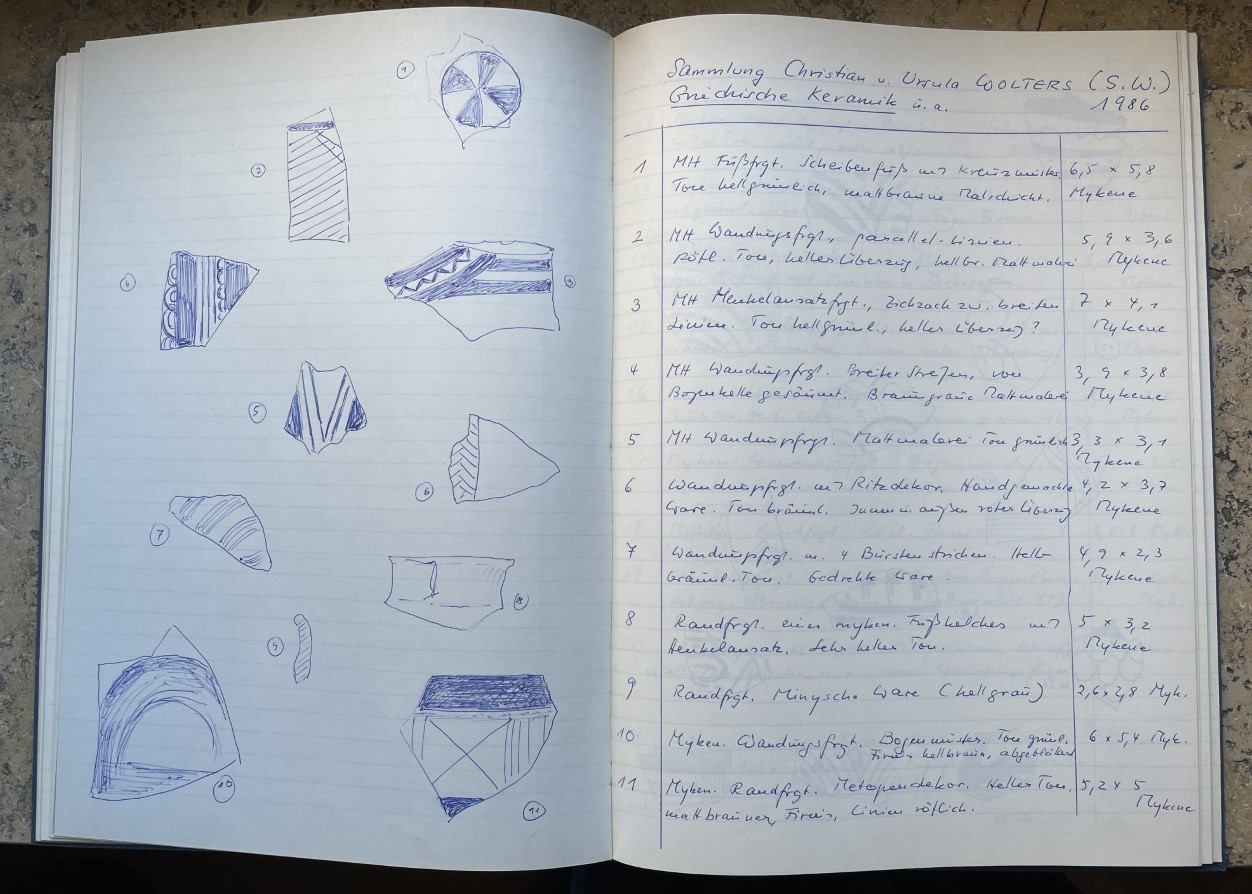 1
2
4
3
5
6
7
8
9
10
11
Sammlung Christian u. Ursula WOLTERS (S.W.)
Griechische Keramik u.a. 1986
1 MH Fußfrgt. Scheibenfuß mit Kreuzmuster 6,5 x 5,8
Ton hellgrünlich, mattbraune Malschicht. Mykene
2 MH Wandungsfrgt., parallel-Linien. 5,9 x 3,6
Rötl. Ton, heller Überzug, hellbr. Mattmalerei Mykene
3 MH Henkelansatzfrgt., Zickzack zw. breiten 7 x 4,1
Linien. Ton hellgrünl., heller Überzug? Mykene
4 MH Wandungsfrgt. Breiter Streifen, von 3,9 x 3,8
Bogenkette gesäumt. Braungraue Mattmalerei Mykene
5 MH Wandungsfrgt. Mattmalerei Ton grünlich 3,3 x 3,1
Mykene
6 Wandungsfrgt. mit Ritzdekor. Handgemachte 4,2 x 3,7
Ware. Ton bräunl. Innen u. außen roter Überzug Mykene
7 Wandungsfrgt. m. 4 Bürstenstrichen. Hell- 4,9 x 2,3
bräunl. Ton. Gedrehte Ware. Mykene
8 Randfrgt. eines myken. Fußkelches mit 5 x 3,2
Henkelansatz, Sehr heller Ton. Mykene
9 Randfrgt. Minysche Ware (hellgrau) 2,6 x 2,8 Myk.
10 Myken. Wandungsfrgt. Bogenmuster. Ton grünl. 6 x 5,4 Myk.
Firnis hellbraun, abgeblättert
11 Myken. Randfrgt. Metopendekor. Heller Ton, 5,2 x 5
mattbrauner Firnis, Linien rötlich. Mykene